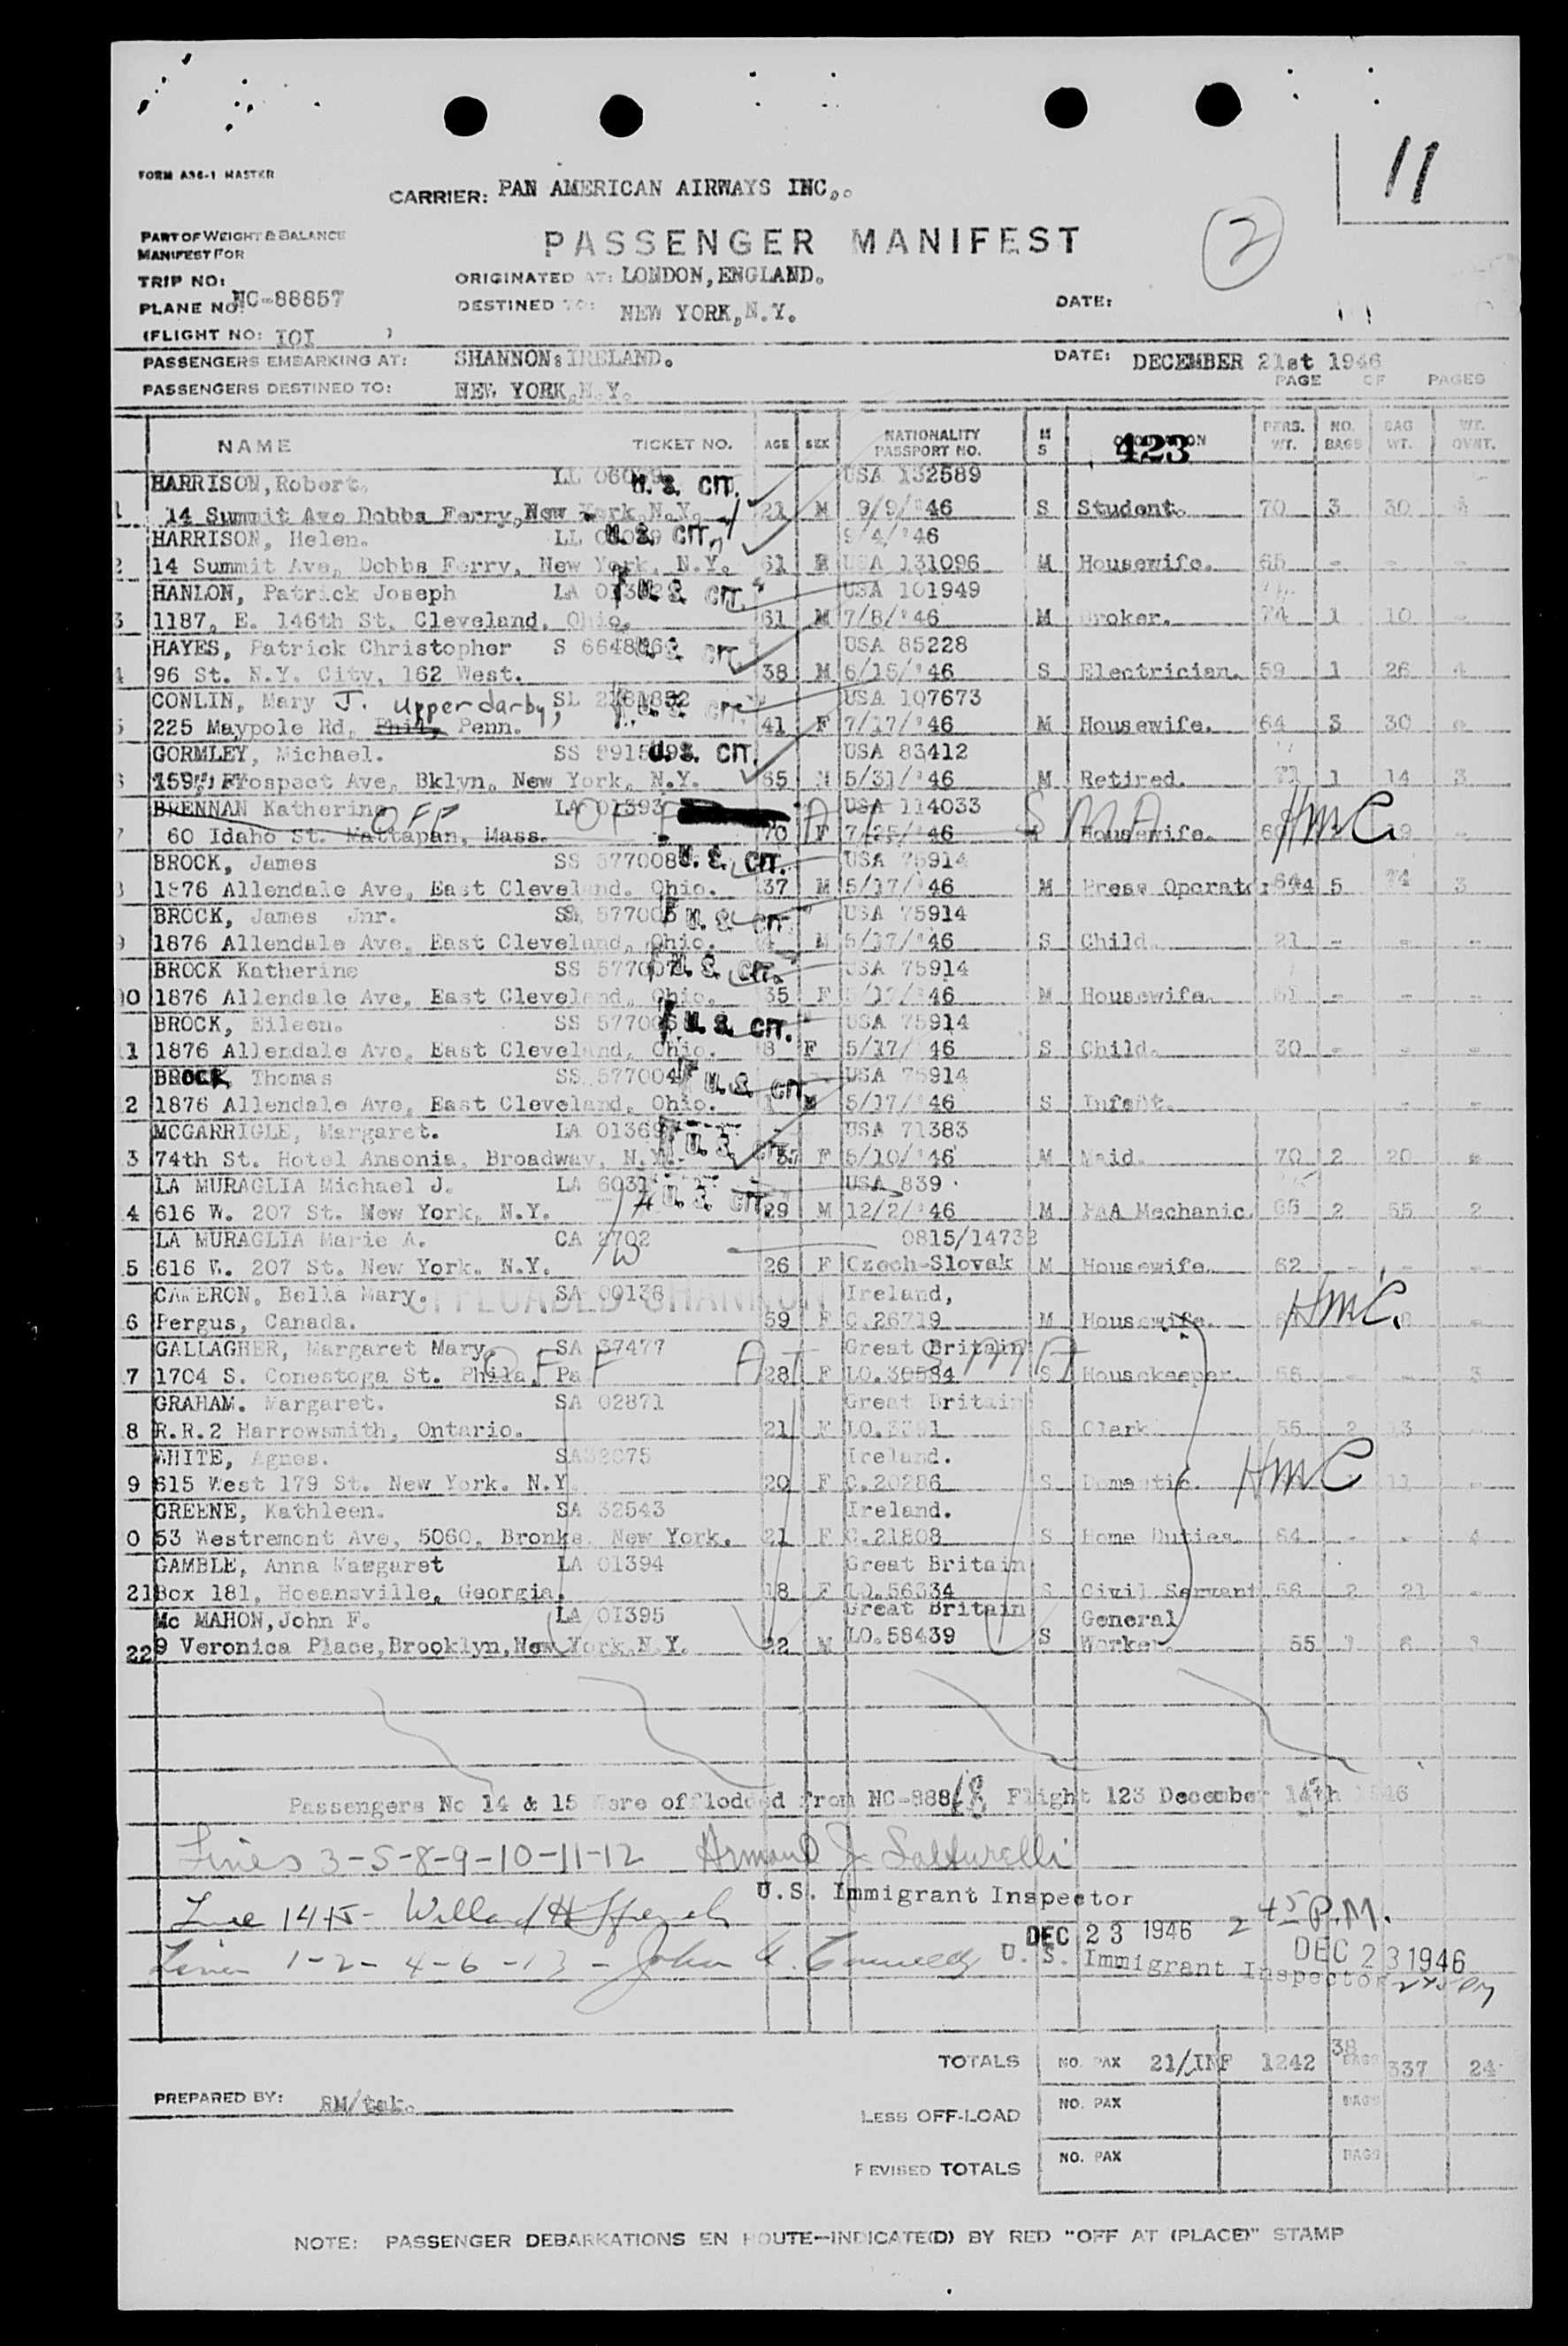 11
FORM A36-1 MASTER
CARRIER: PAN AMERICAN AIRWAYS INC.
PART OF WEIGHT & BALANCE
MANIFEST FOR
PASSENGER MANIFEST
2
TRIP NO:
ORIGINATED AT: LONDON, ENGLAND.
PLANE NO: NC-88857
DESTINED TO: NEW YORK, N.Y.
DATE:
(FLIGHT NO: IOI )
PASSENGERS EMBARKING AT: SHANNON: IRELAND.
DATE: DECEMBER 21st 1946
PASSENGERS DESTINED TO: NEW YORK, N.Y.
PAGE OF PAGES
NAME TICKET NO. AGE SEX NATIONALITY PASSPORT NO. M S 423 PERS. WT. NO. BAGS BAG WT. WT. OVNT.
HARRISON, Robert. LL U. S. CIT. USA 132589
14 Summit Ave Dobbs Ferry, New York, N.Y. 21 M 9/9/'46 S Student. 70 3 30
HARRISON, Helen. LL U. S. CIT. 9/4/'46
2 14 Summit Ave, Dobbs Ferry, New York, N.Y. 61 USA 131096 M Housewife. 65 - - -
HANLON, Patrick Joseph LA U. S. CIT. USA 101949
3 1187, E. 146th St. Cleveland, Ohio. 61 M 7/8/'46 M Broker. 74 1 10 -
HAYES, Patrick Christopher S U. S. CIT. USA 85228
4 96 St. N.Y. City, 162 West. 38 M 6/15/'46 S Electrician. 59 1 26 4
CONLIN, Mary J. Upper darby, SL U. S. CIT. USA 107673
5 225 Maypole Rd, Phil, Penn. 41 F 7/17/'46 M Housewife. 64 3 30 -
GORMLEY, Michael. SS U. S. CIT. USA 83412
Prospect Ave, Bklyn, New York, N.Y. 65 M 5/31/'46 M Retired. 71 1 14 3
BRENNAN Katherine OFF LA 01393 OFF AT USA 114033 SMA HMC
7 60 Idaho St. Mattapan, Mass. 70 F 7/25/'46 Housewife. 19 -
BROCK, James SS 577008 U. S. CIT. USA 75914
1876 Allendale Ave, East Cleveland. Ohio. 37 M 5/17/'46 M Press Operator 5 74 3
BROCK, James Jnr. U. S. CIT. USA 75914
9 1876 Allendale Ave, East Cleveland, Ohio. 4 M 5/17/'46 S Child 21 - - -
BROCK Katherine SS U. S. CIT. USA 75914
10 1876 Allendale Ave, East Cleveland, Ohio. 35 F 5/17/'46 M Housewife. 61 - - -
BROCK, Eileen. SS U. S. CIT. USA 75914
11 1876 Allendale Ave, East Cleveland, Ohio. 8 F 5/17/ 46 S Child. 30 - - -
BROCK, Thomas SS 577004 U. S. CIT. USA 75914
2 1876 Allendale Ave, East Cleveland, Ohio. 1 5/17/'46 S Infant. - -
MCGARRIGLE, Margaret. LA U. S. CIT. USA 71383
3 74th St. Hotel Ansonia, Broadway, N.Y. 37 F 5/10/'46 M Maid. 70 2 20 -
LA MURAGLIA Michael J. LA U. S. CIT. USA 839
4 616 W. 207 St. New York, N.Y. 29 M 12/2/'46 M PAA Mechanic. 65 2 65 2
LA MURAGLIA Marie A. CA 2702 0815/14732
5 616 W. 207 St. New York. N.Y. 26 F Czech-Slovak M Housewife. 62 - - -
CAMERON, Bella Mary. SA 00138 OFFLOADED SHANNON Ireland, HMC.
6 Fergus, Canada. 59 F C.26719 M Housewife.
GALLAGHER, Margaret Mary SA 37477 Great Britain
7 1704 S. Conestoga St. Phila, Pa OFF AT SMA 28 F LO.30584 S Housekeeper. 3
GRAHAM. Margaret. SA 02871 Great Britain
8 R.R.2 Harrowsmith, Ontario. 21 F S Clerk 55 2 13 -
WHITE, Agnes. SA32675 Ireland.
9 615 West 179 St. New York. N.Y. 20 F C.20286 S Domestic. HMC 11 -
GREENE, Kathleen. SA 32543 Ireland.
0 53 Westremont Ave, 5060, Bronks, New York. 21 F C.21808 S Home Duties. 64 - - 4
GAMBLE, Anna Margaret LA 01394 Great Britain
21 Box 181, Hogansville, Georgia. 18 F LO.56334 S Civil Servant 56 2 21 -
Mc MAHON, John F. LA OI395 Great Britain General
22 9 Veronica Place, Brooklyn, New York, N.Y. 22 M LO.58439 S Worker. 55
Passengers No 14 & 15 Were offlodded from NC-888 Flight 123 December 1946
Lines 3-5-8-9-10-11-12 Armand J.
U.S. Immigrant Inspector
Line 14+15- Willard H.
DEC 23 1946 2 45 P.M.
Lines 1-2-4-6-13- John
U. S. Immigrant Inspector
DEC 23 1946 2 45 PM
TOTALS NO. PAX 21/INF 1242 38 BAGS 337 24
PREPARED BY: RM/
LESS OFF-LOAD NO. PAX BAGS
REVISED TOTALS NO. PAX BAGS
NOTE: PASSENGER DEBARKATIONS EN ROUTE-INDICATE(D) BY RED "OFF AT (PLACE)" STAMP